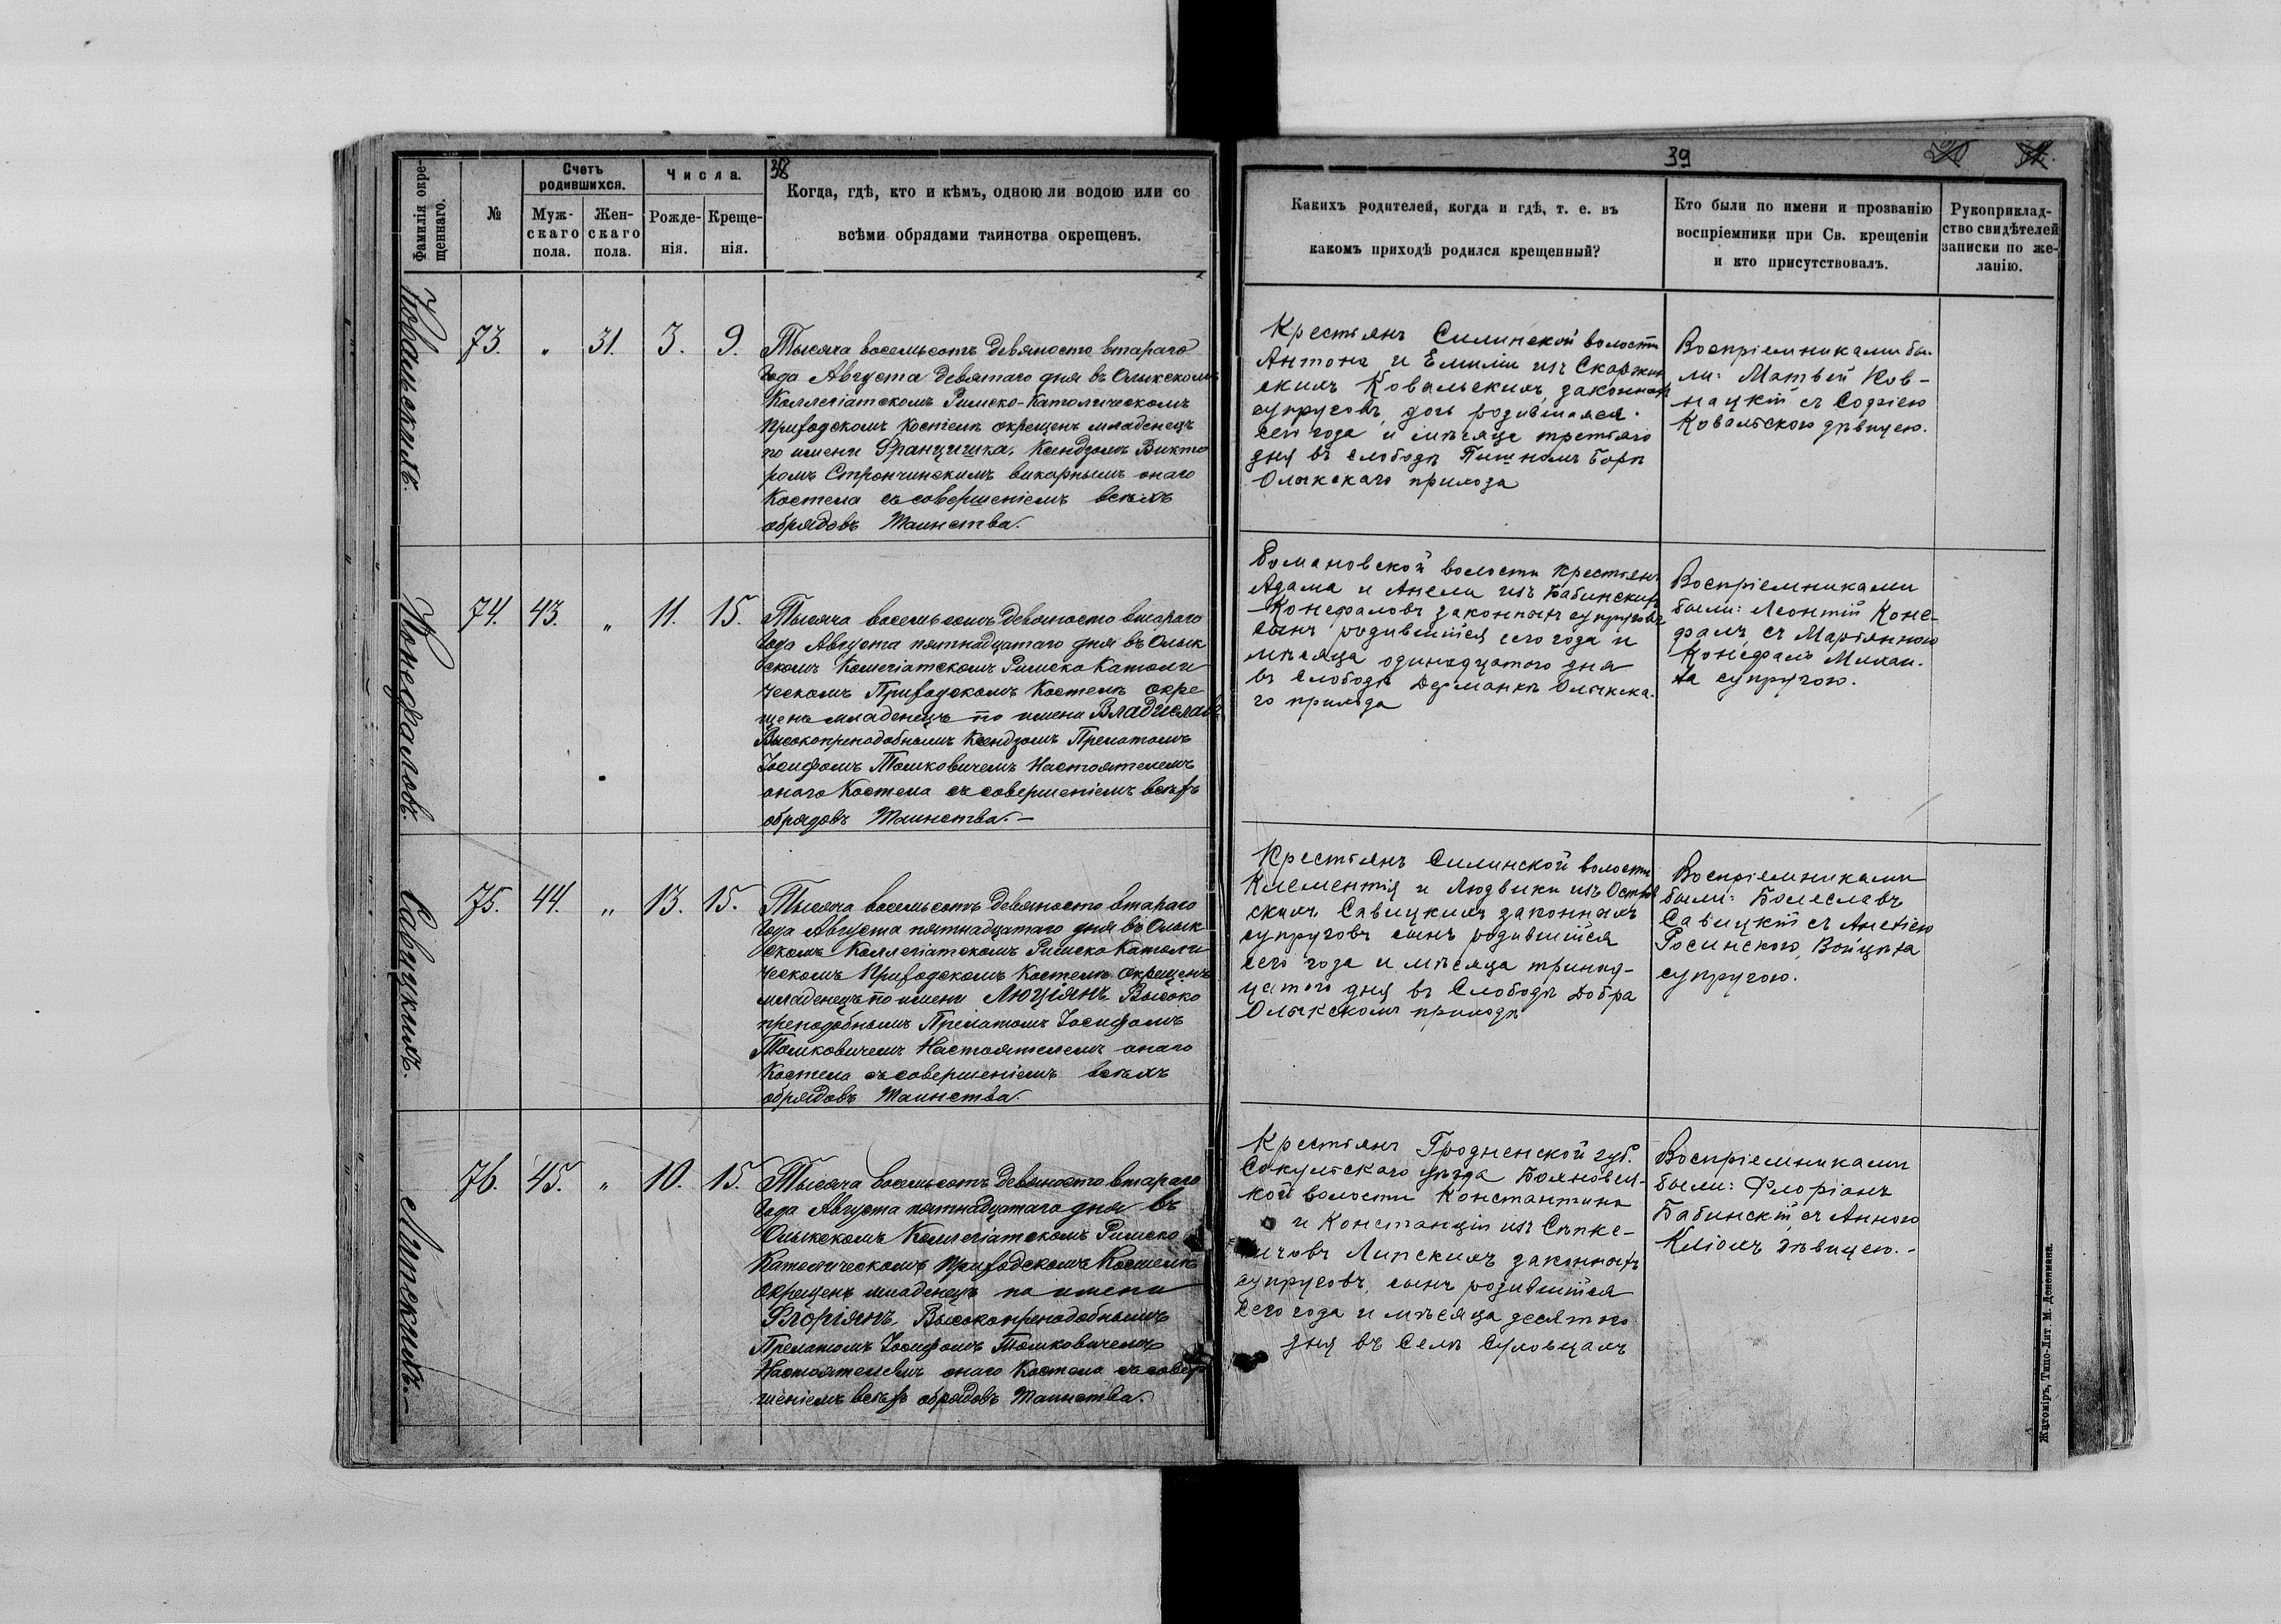 38
Фамилія окре-
щеннаго.
№
Счетъ
родившихся.
Муж-
скаго
пола.
Жен-
скаго
пола.
Числа.
Рожде-
нія.
Креще-
нія.
Когда, гдѣ, кто и кѣмъ, одною ли водою или со
всѣми обрядами таинства окрещенъ.
39
Какихъ родителей, когда и гдѣ, т. е. въ
какомъ приходѣ родился крещенный?
Кто были по имени и прозванію
воспріемники при Св. крещеніи
и кто присутствовалъ.
Рукоприклад-
ство свидѣтелей
записки по же-
ланію.
Ковальскихъ.
73. " 31. 3. 9.
Тысяча восемьсотъ девяносто втараго
года Августа девятаго дня въ Олыкскомъ
Коллегіатскомъ Римско-Католическомъ
приходскомъ костелѣ окрещенъ младенецъ
по имени Францишка, Ксендзомъ Викто
ромъ Стрончинскимъ викарнымъ онаго
Костела съ совершеніемъ всѣхъ
обрядовъ Таинства.
Крестьянъ Силинской волости
Антона и Емиліи изъ Скаржин
скихъ Ковальскихъ, законныхъ
супруговъ, дочь родившаяся
сего года и мѣсяца третьяго
дня въ слободѣ Пишномъ Борѣ
Олыкскаго прихода
Воспріемниками бы-
ли: Матвей Ков-
нацкій съ Софіею
Ковальскою дѣвицею.
Конефаловъ.
74. 43. " 11. 15.
Тысяча восемьсотъ девяносто втараго
года Августа пятнадцатаго дня въ Олык
скомъ Колегіатскомъ Римско Католи
ческомъ Приходскомъ Костелѣ окре
щенъ младенецъ по имени Владиславъ
Высокопреподобнымъ Ксендзомъ Прелатомъ
Іосифомъ Томковичемъ Настоятелемъ
онаго Костела съ совершеніемъ всѣхъ
обрядовъ Таинства.—
Романовской волости крестьянъ
Адама и Анели изъ Бабинскихъ
Конефаловъ законныхъ супруговъ
сынъ родившійся сего года и
мѣсяца одинадцатого дня
въ слободѣ Дерманкѣ Олыкска-
го прихода
Воспріемниками
были: Леонтій Коне-
фалъ съ Марьянною
Конефалъ Михаи-
ла супругою.
Савицкихъ.
75. 44. " 13. 15.
Тысяча восемьсотъ девяносто втараго
года Августа пятнадцатаго дня въ Олык
скомъ Коллегіатскомъ Римско Католи
ческомъ Приходскомъ Костелѣ окрещенъ
младенецъ по имени Люціянъ Высоко
преподобнымъ Прелатомъ Іосифомъ
Томковичемъ Настоятелемъ онаго
Костела съ совершеніемъ всѣхъ
обрядовъ Таинства.
Крестьянъ Силинской волости
Клементія и Людвики изъ Остров
скихъ Савицкихъ законныхъ
супруговъ сынъ родившійся
сего года и мѣсяца тринад-
цатого дня въ Слободѣ Добра
Олыкскомъ приходѣ
Воспріемниками
были: Болеславъ
Савицкій съ
Росинскою, Войцѣха
супругою.
Липскихъ.—
76. 45. " 10. 15.
Тысяча восемьсотъ девяносто втараго
года Августа пятнадцатаго дня въ
Олыкскомъ Коллегіатскомъ Римско
Католическомъ Приходскомъ Костелѣ
окрещенъ младенецъ по имени
Флоріянъ, Высокопреподобнымъ
Прелатомъ Іосифомъ Томковичемъ
Настоятелемъ онаго Костела съ совер
шеніемъ всѣхъ обрядовъ Таинства.
Крестьянъ Гродненской губ.
Сокульскаго уѣзда
кой волости Константина
и Констанціи изъ
Липскихъ законныхъ
супруговъ, сынъ родившійся
сего года и мѣсяца десятого
дня въ Селѣ
Воспріемниками
были: Флоріанъ
Бабинскій съ Анною
дѣвицею.-
Житоміръ, Типо-Лит. М. Дененмана.